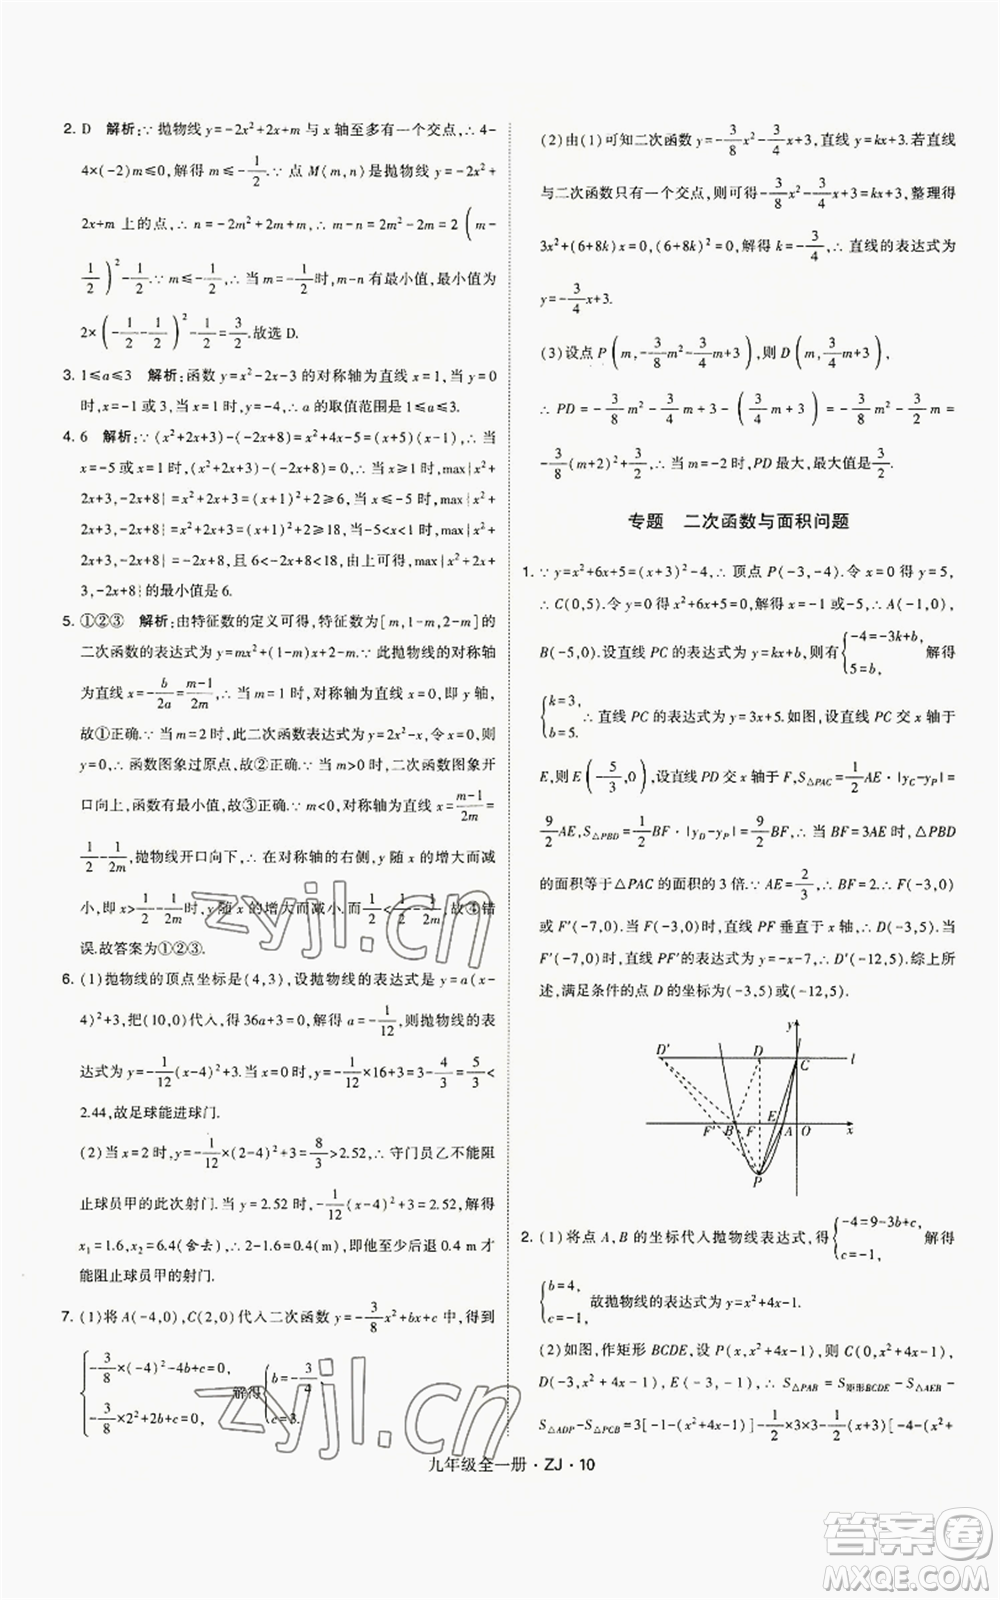 2. D 解析:∵ 抛物线 y=-2x²+2x+m 与 x 轴至多有一个交点,∴ 4-
4×(-2)m≤0,解得 m≤-1/2.∵ 点 M(m,n)是抛物线 y=-2x²+
2x+m 上的点,∴ n=-2m²+2m+m,∴ m-n=2m²-2m=2(m-
1/2)²-1/2.∵ m≤-1/2,∴ 当 m=-1/2时,m-n 有最小值,最小值为
2×(-1/2-1/2)²-1/2=3/2.故选 D.
3. 1≤a≤3 解析:函数 y=x²-2x-3 的对称轴为直线 x=1,当 y=0
时,x=-1 或 3,当 x=1 时,y=-4,∴ a 的取值范围是 1≤a≤3.
4. 6 解析:∵ (x²+2x+3)-(-2x+8)=x²+4x-5=(x+5)(x-1),∴ 当
x=-5 或 x=1 时,(x²+2x+3)-(-2x+8)=0,∴ 当 x≥1 时,max{x²+
2x+3,-2x+8}=x²+2x+3=(x+1)²+2≥6;当 x≤-5 时,max{x²+
2x+3,-2x+8}=x²+2x+3=(x+1)²+2≥18;当-5<x<1 时,max{x²+
2x+3,-2x+8}=-2x+8,6<-2x+8<18.由上可得,max{x²+2x+
3,-2x+8}的最小值是 6.
5. ①②③ 解析:由特征数的定义可得,特征数为[m,1-m,2-m]的
二次函数的表达式为 y=mx²+(1-m)x+2-m.∵ 此抛物线的对称轴
为直线 x=-b/2a=(m-1)/2m,∴ 当 m=1 时,对称轴为直线 x=0,即 y 轴,
故①正确.∵ 当 m=2 时,此二次函数表达式为 y=2x²-x,∴ 当 x=0
时,y=0,∴ 函数图象过原点,故②正确.∵ 当 m>0 时,二次函数图象开
口向上,函数有最小值,故③正确.∵ m<0,对称轴为直线 x=(m-1)/2m=
1/2-1/2m,抛物线开口向下,∴ 在对称轴的右侧,y 随 x 的增大而减
小,即 x>1/2-1/2m时,y 随 x 的增大而减小.而1/2-1/2m>1/2,故④错
误.故答案为①②③.
6. (1)抛物线的顶点坐标是(4,3),设抛物线的表达式是 y=a(x-
4)²+3,把(10,0)代入,得 36a+3=0,解得 a=-1/12,则抛物线的表
达式为 y=-1/12(x-4)²+3.当 x=0 时,y=-1/12×16+3=-4/3+3=5/3<
2.44,故足球能进球门.
(2)当 x=2 时,y=-1/12×(2-4)²+3=8/3>2.52,∴ 守门员乙不能阻
止球员甲的此次射门.当 y=2.52 时,-1/12(x-4)²+3=2.52,解得
x₁=1.6,x₂=6.4(舍去),∴ 2-1.6=0.4(m),即他至少后退 0.4 m 才
能阻止球员甲的射门.
7. (1)将 A(-4,0),C(2,0)代入二次函数 y=-3/8x²+bx+c 中,得到
{-3/8×(-4)²-4b+c=0, -3/8×2²+2b+c=0, 解得{b=-3/4, c=3.
(2)由(1)可知二次函数 y=-3/8x²-3/4x+3,直线 y=kx+3.若直线
与二次函数只有一个交点,则可得-3/8x²-3/4x+3=kx+3,整理得
3x²+(6+8k)x=0,(6+8k)²=0,解得 k=-3/4,∴ 直线的表达式为
y=-3/4x+3.
(3)设点 P(m,-3/8m²-3/4m+3),则 D(m,3/4m+3),
∴ PD=-3/8m²-3/4m+3-(3/4m+3)=-3/8m²-3/2m=
-3/8(m+2)²+3/2,∴ 当 m=-2 时,PD 最大,最大值是3/2.
专题 二次函数与面积问题
1. ∵ y=x²+6x+5=(x+3)²-4,∴ 顶点 P(-3,-4).令 x=0 得 y=5,
∴ C(0,5).令 y=0 得 x²+6x+5=0,解得 x=-1 或-5,∴ A(-1,0),
B(-5,0).设直线 PC 的表达式为 y=kx+b,则有{-4=-3k+b, 5=b, 解得
{k=3, b=5. ∴ 直线 PC 的表达式为 y=3x+5.如图,设直线 PC 交 x 轴于
E,则 E(-5/3,0),设直线 PD 交 x 轴于 F,S△PAC=1/2AE·|yC-yP|=
9/2AE,S△PBD=1/2BF·|yD-yP|=9/2BF,∴ 当 BF=3AE 时,△PBD
的面积等于△PAC 的面积的 3 倍.∵ AE=2/3,∴ BF=2.∴ F(-3,0)
或 F'(-7,0).当 F(-3,0)时,直线 PF 垂直于 x 轴,∴ D(-3,5).当
F'(-7,0)时,直线 PF'的表达式为 y=-x-7,∴ D'(-12,5).综上所
述,满足条件的点 D 的坐标为(-3,5)或(-12,5).
y
D' D C l
F' B F E A O x
P
2. (1)将点 A,B 的坐标代入抛物线表达式,得{-4=9-3b+c, c=-1, 解得
{b=4, c=-1, 故抛物线的表达式为 y=x²+4x-1.
(2)如图,作矩形 BCDE,设 P(x,x²+4x-1),∴ S△PAB=S矩形BCDE-S△AEB-
S△ADP-S△PCB=3[-1-(x²+4x-1)]-1/2×3×3-1/2(x+3)[-4-(x²+
九年级全一册·ZJ·10
zyjl.cn
zyjl.cn
答案卷
MXQE.COM